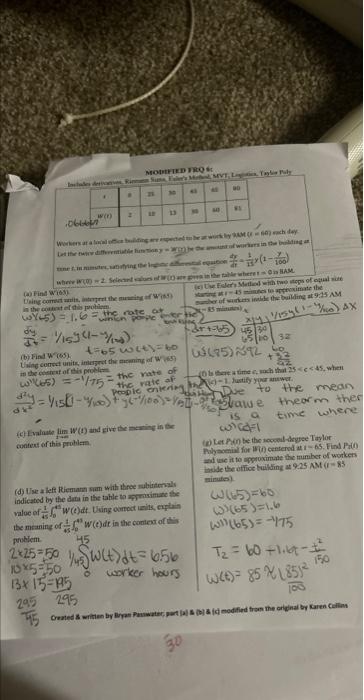 MODIFIED FRQ 6:
Includes derivatives, Riemann Sums, Euler's Method, MVT, Logistics, Taylor Poly
t 0 25 30 45 65 90
W(t) 2 10 13 30 60
Workers at a local office building are expected to be at work by 9AM (t = 60) each day.
Let the twice differentiable function y = W(t) be the amount of workers in the building at
time t, in minutes, satisfying the logistic differential equation dy/dt = 1/15 y(1 - y/100)
where W(0) = 2. Selected values of W(t) are given in the table where t = 0 is 8AM.
(a) Find W'(65)
Using correct units, interpret the meaning of W'(65)
in the context of this problem.
W'(65) = 1.6 = the rate at
which people enter the
building
dy/dt = 1/15y(1-y/100)
t=65 W(t)=60
(b) Find W''(65).
Using correct units, interpret the meaning of W''(65)
in the context of this problem.
W''(65) = -1/75 = the rate of
the rate of
people entering the
(c) Evaluate lim W(t) and give the meaning in the
context of this problem.
(d) Use a left Riemann sum with three subintervals
indicated by the data in the table to approximate the
value of 1/45 ∫ W(t)dt. Using correct units, explain
the meaning of 1/45 ∫ W(t)dt in the context of this
problem.
2x25=50
10x5=50
13x15=195
295
45
295
1/45 ∫ W(t)dt = 6.56
worker hours
(e) Use Euler's Method with two steps of equal size
starting at t = 45 minutes to approximate the
number of workers inside the building at 9:25 AM
(t = 85 minutes).
x y 1/15y(1-y/100) Δx
45 30
65
W(85)≈92
(f) Is there a time c, such that 25 < c < 45, when
W'(c) = 1. Justify your answer.
Due to the mean
value theorm ther
is a time where
w'(c)=1
(g) Let P₂(t) be the second-degree Taylor
Polynomial for W(t) centered at t = 65. Find P₂(t)
and use it to approximate the number of workers
inside the office building at 9:25 AM (t = 85
minutes).
W(65)=60
W'(65)=1.6
W''(65)=-1/75
T₂ = 60 + 1.6t - t²/150
Created & written by Bryan Passwater; part (a) & (b) & (c) modified from the original by Karen Collins
30